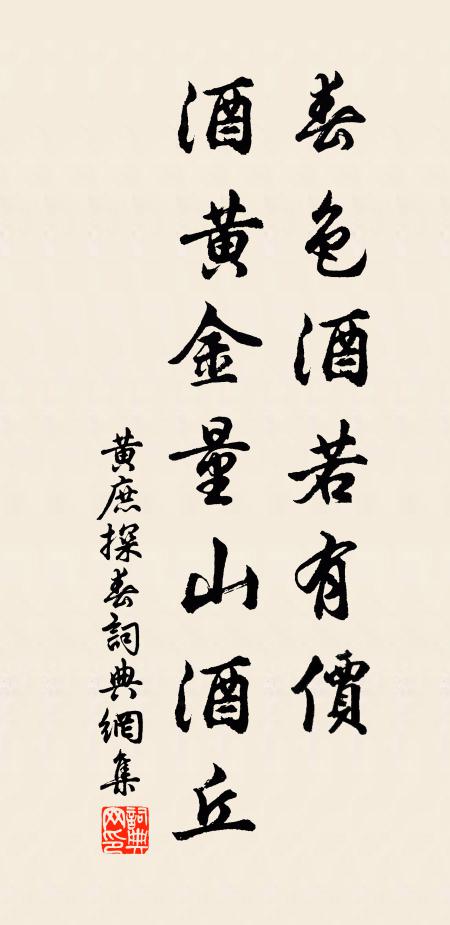 春色酒若有價
酒黃金量山酒丘
黃庶探春詞典網集
詞典网印